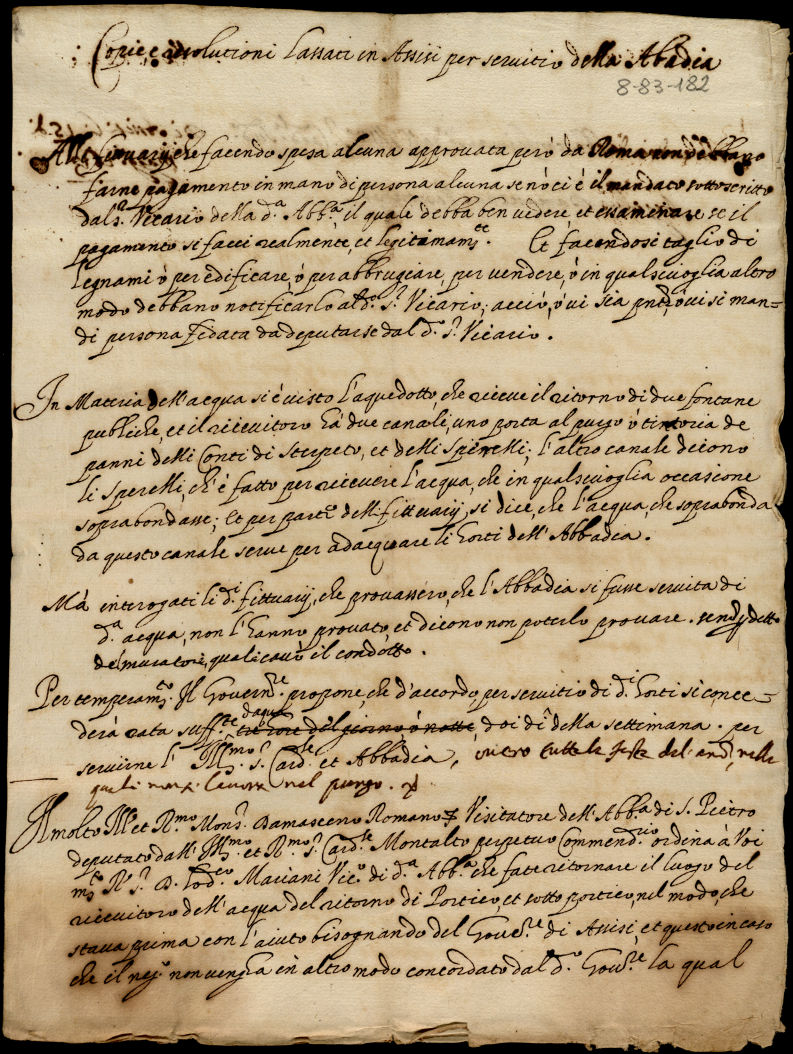 Copie, e risolutioni lassati in Assisi per servitio della Abadia
8-83-182
Alli fittuarij che facendo spesa alcuna approvata però da Roma non debbano
farne pagamento in mano di persona alcuna se nò ci è il mandato sottoscritto
dal s.r Vicario della d.a Abb.a il quale debba ben vedere, et essaminare se il
pagamento si facci realmente, et legitimam.te. Et facendosi taglio di
legnami ò per edificare, ò per abbrugiare, per vendere, ò in qualsivoglia altro
modo debbano notificarlo al d.o s.r Vicario; acciò, ò vi sia pnte, ò vi si man=
di persona fidata da deputarse dal d.o s.r Vicario.
In Materia dell'acqua si è visto l'aquedotto, che riceve il ritorno di due fontane
publiche, et il ricevitoro hà due canali, uno porta al purgo ò tintoria de
panni delli Conti di Sterpeto, et delli Sperelli; l'altro canale dicono
li Sperelli, ch'è fatto per ricevere l'acqua, che in qualsivoglia occasione
soprabondasse; Et per parte dell fittuarij, si dice, che l'acqua, che soprabonda
da questo canale serve per adacquare li horti dell'Abbadia.
Mà interogati li d.i fittuarij, che provassero, che l'Abbadia si fusse servita di
d.a acqua, non l'hanno provato, et dicono non poterlo provare. detto
del muratore, qual cavò il condotto.
Per temperam.to Il Govern.re propone, che d'accordo, per servitio di d.i horti si conce=
derà rata suff.te d'aqua tre hore del giorno ò notte doi dì della settimana. per
servirne l'Ill.mo s. Card.le et Abbadia, overo tutte le feste del' anō, nelle
quali non si lavora nel purgo.
Il molto Ill.e et R.mo Mons.r Damasceno Romano Visitatore dell'Abb.a di S. Pietro
deputato dall'Ill.mo et R.mo s.r Card.le Montalto perpetuo Commend.rio ordina à Voi
m.to R.o s.r D. Lod.co Mariani Vic.o di d.a Abb.a che fate ritornare il luogo del
ricevitoro dell'acqua del ritorno di Portico, et sotto portico, nel modo, che
stava prima con l'aiuto bisognando del Gover.re di Assisi, et questo in caso
che il neg.o non vengha in altro modo concordato dal d.o Gov.re la qual